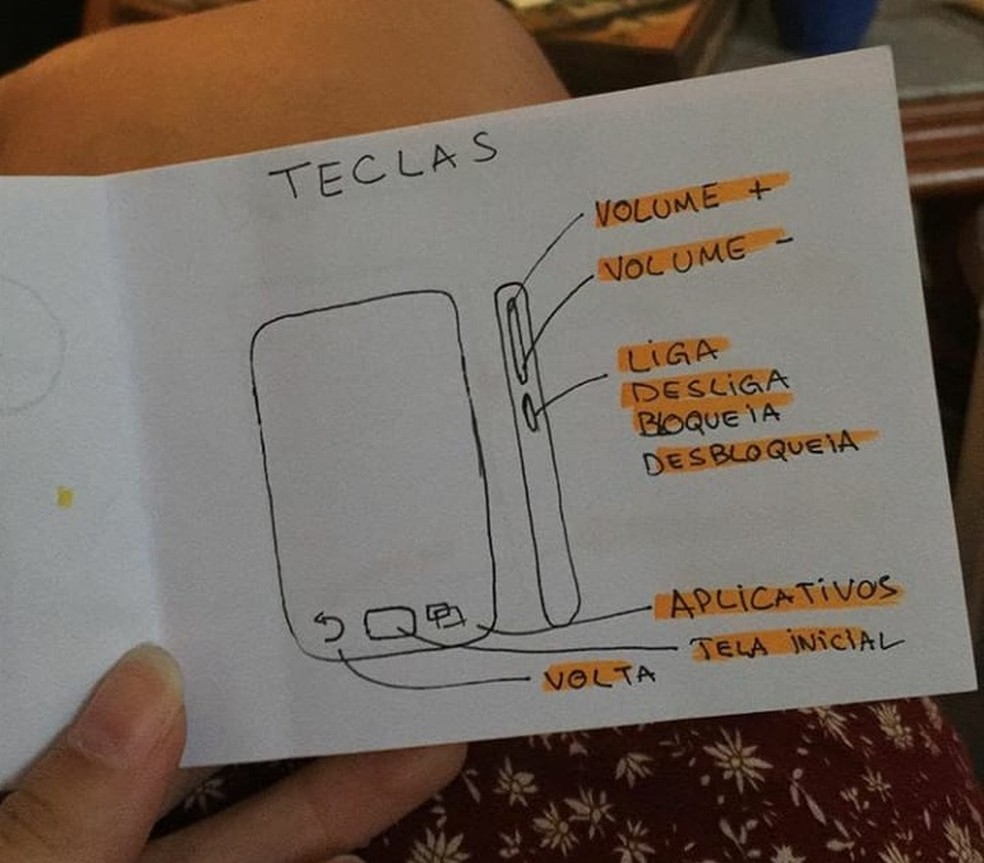 TECLAS
VOLUME +
VOLUME -
LIGA
DESLIGA
BLOQUEIA
DESBLOQUEIA
APLICATIVOS
TELA INICIAL
VOLTA